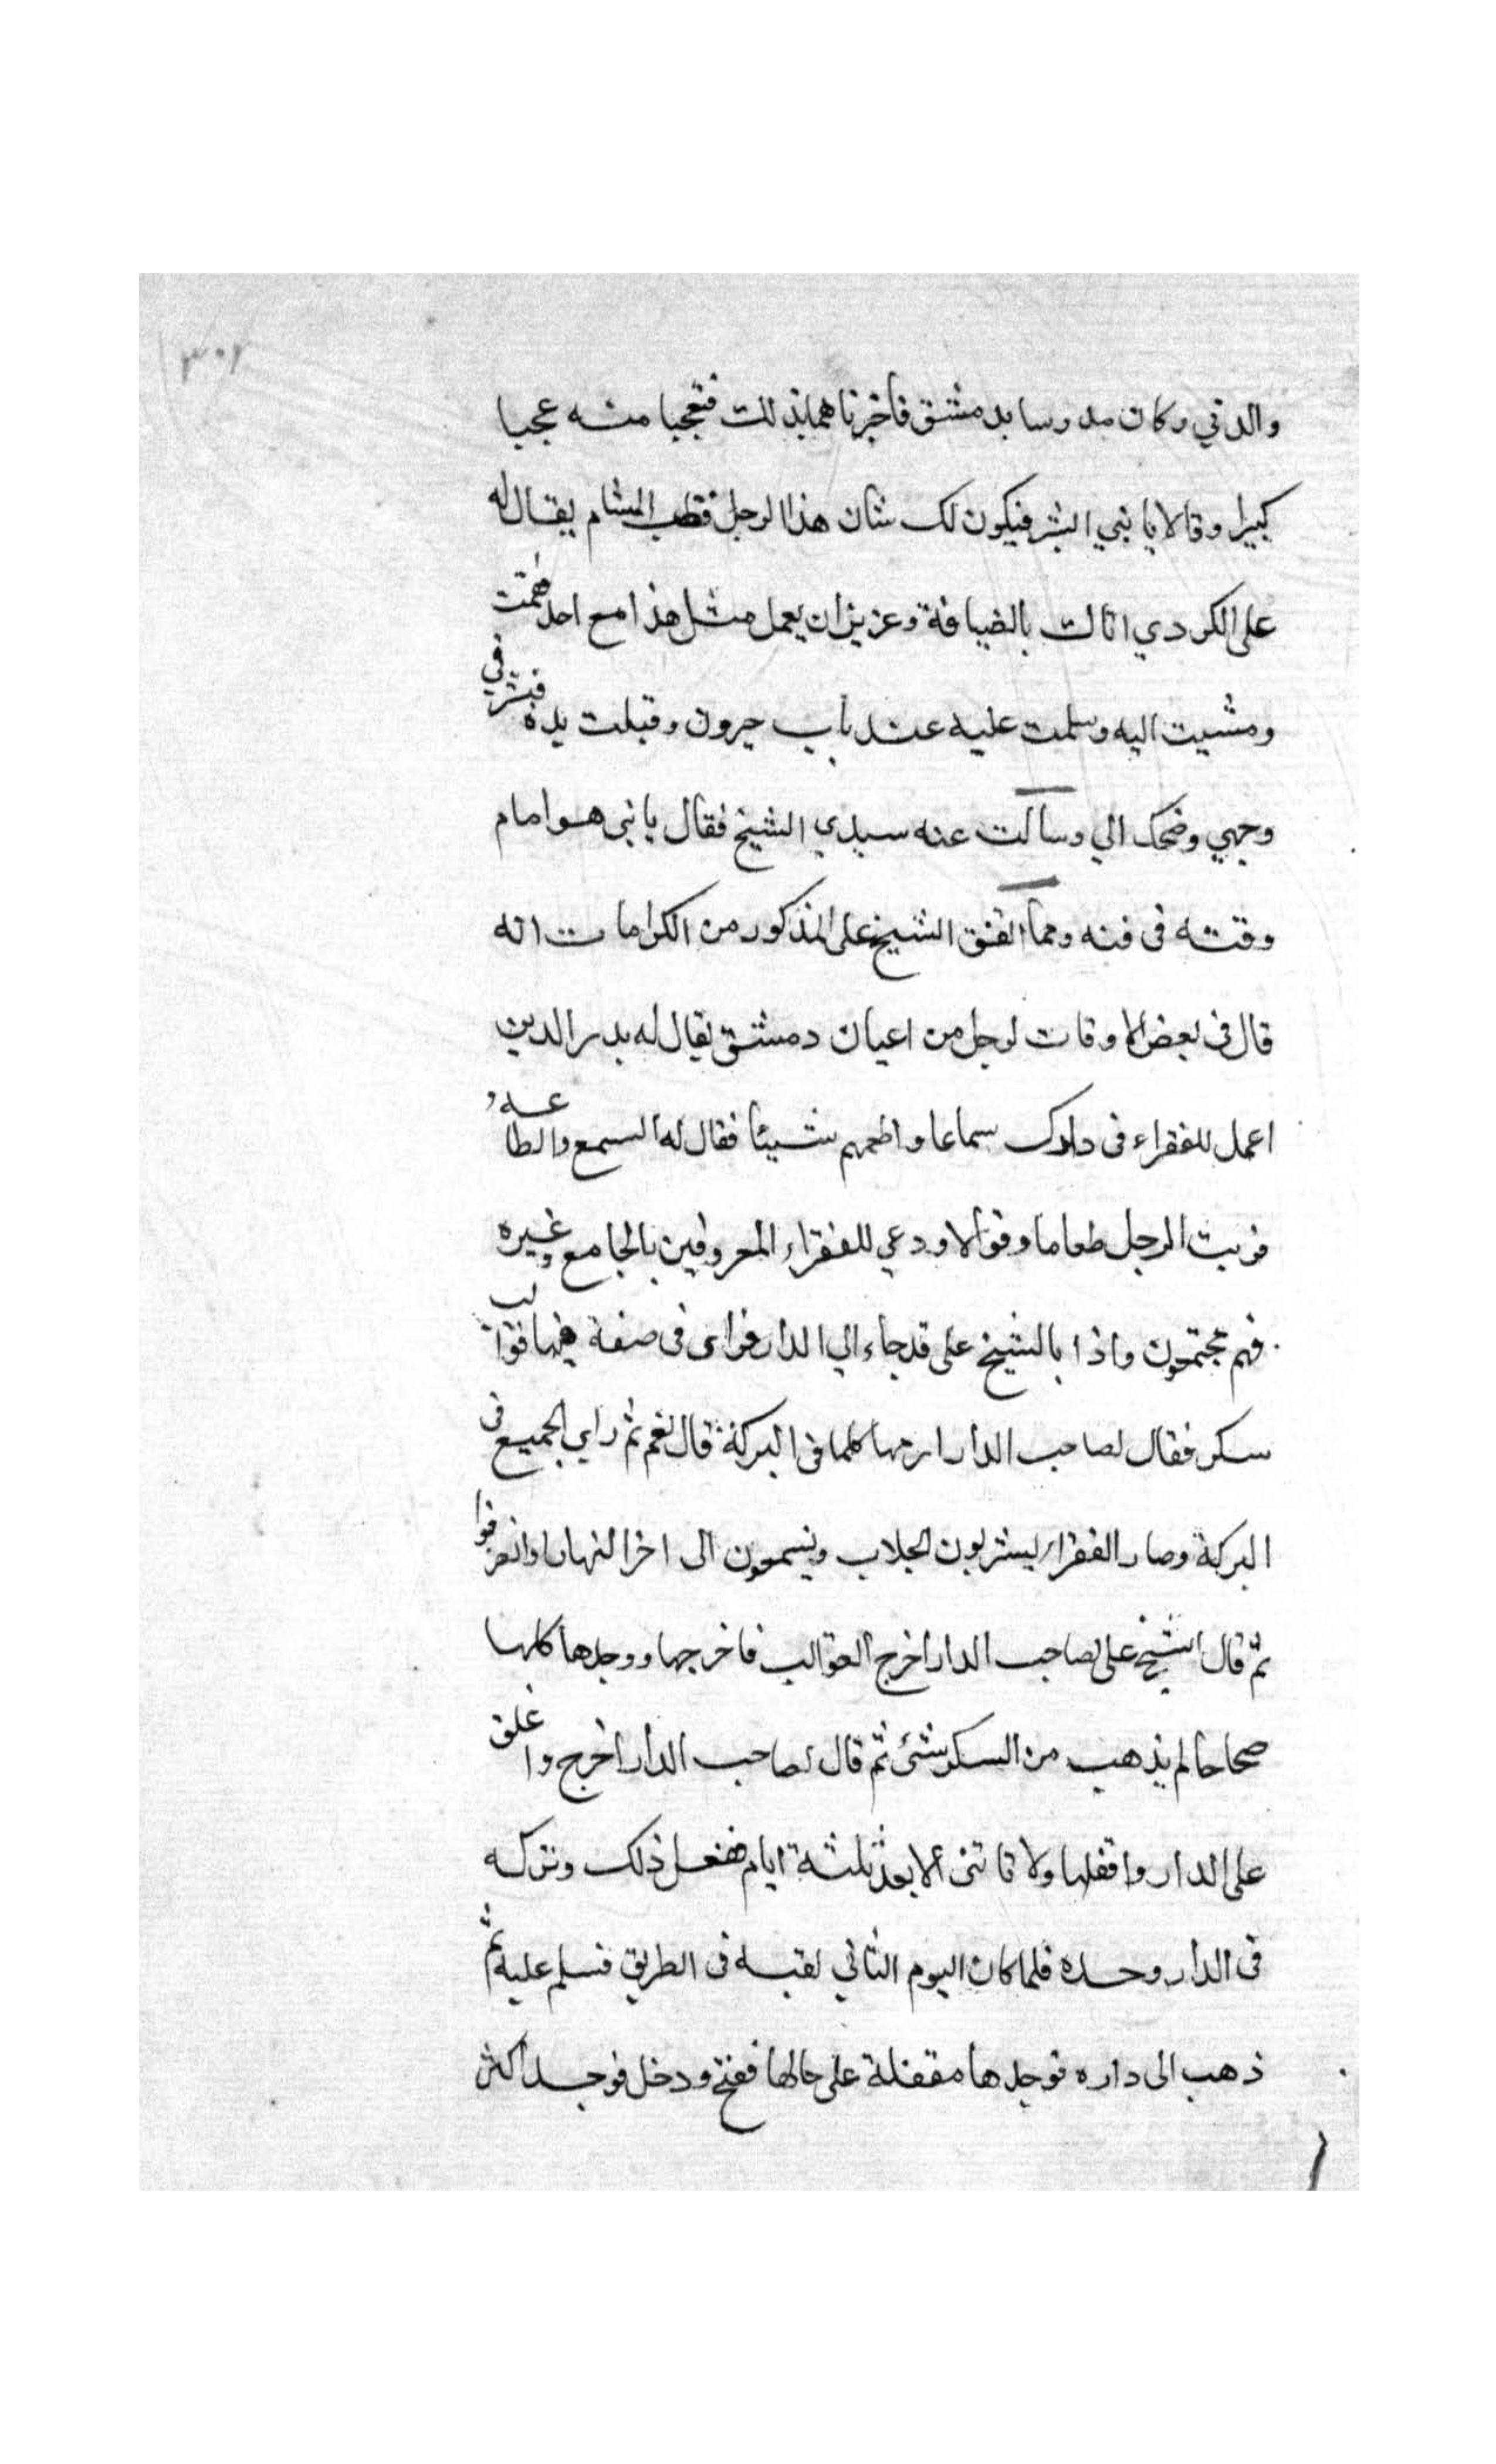 ٣٠١
والدتي وكان مدرسا بدمشق فأخبرناهما بذلك فتعجبا منه عجبا
كبيرا وقالا يا بني ابشر فيكون لك شان هذا الرجل قطب الشام يقال له
على الكردي اتاك بالضيافة وعزيز ان يعمل مثل هذا مع احد فقمت
ومشيت اليه وسلمت عليه عند باب جيرون وقبلت يده فبش في
وجهي وضحك الي وسألت عنه سيدي الشيخ فقال يا بني هو امام
وقته في فنه ومما اتفق الشيخ على المذكور من الكرامات انه
قال في بعض الاوقات لرجل من اعيان دمشق يقال له بدر الدين
اعمل للفقراء في دارك سماعا واطعمهم شيئا فقال له السمع والطاعه و
فرتب الرجل طعاما وقوالا ودعي للفقراء المعروفين بالجامع وغيره
فهم مجتمعون واذا بالشيخ على قد جاء الي الدار فراى في صفة فيها قوالب
سكر فقال لصاحب الدار ارمها كلها في البركة قال نعم ثم راي الجميع في
البركة وصار الفقراء يشربون الجلاب ويسمعون الى اخر النهار وانصرفوا
ثم قال الشيخ على لصاحب الدار اخرج القوالب فاخرجها ووجدها كلها
صحاحا لم يذهب من السكر شئ ثم قال لصاحب الدار اخرج واغلق
على الدار واقفلها ولا تاتني الا بعد ثلثة ايام ففعل ذلك وتركه
في الدار وحده فلما كان اليوم الثاني لقيه في الطريق فسلم عليه ثم
ذهب الى داره فوجدها مقفلة على حالها ففتح ودخل فوجد اكثر